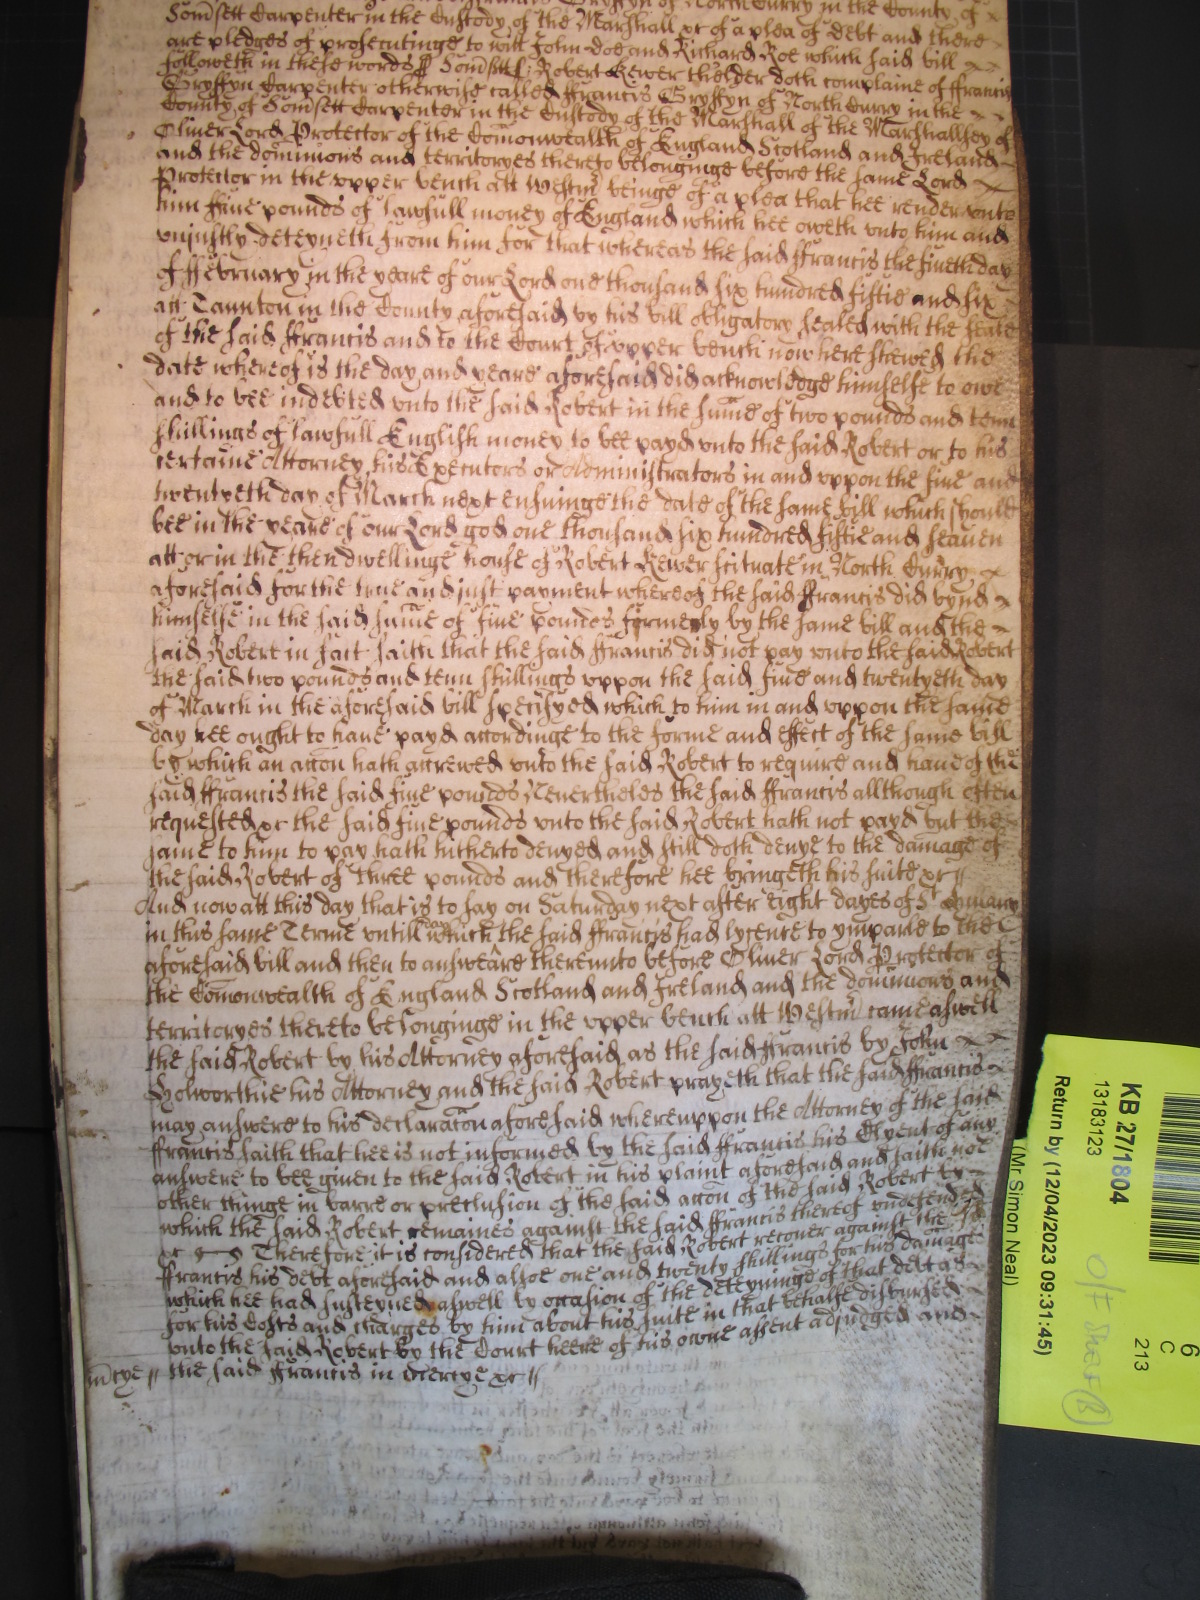 Gryffyn of North Curry in the County of
Som̃sett Carpenter in the Custody of the Marshall &c of a plea of debt and there
are pledges of prosecutinge to witt John Doe and Richard Roe which said bill
followeth in these words ss Som̃sett ss Robert Rewer thelder doth complaine of ffrancis
Gryffyn Carpenter otherwise called ffrancis Gryffyn of North Curry in the
County of Som̃sett Carpenter in the Custody of the Marshall of the Marshallsey of
Oliver Lord Protector of the Com̃onwealth of England Scotland and Ireland
and the dominions and territoryes thereto belonginge before the same Lord
Protector in the upper bench att Westm̃ beinge of a plea that hee render unto
him five pounds of lawfull money of England which hee oweth unto him and
uniustly deteyneth from him for that whereas the said ffrancis the fiveth day
of ffebruary in the yeare of our Lord one thousand six hundred fiftie and six
att Taunton in the County aforesaid by his bill obligatory sealed with the seale
of the said ffrancis and to the Court of upper bench now here shewed the
date whereof is the day and yeare aforesaid did acknowledge himselfe to owe
and to bee indebted unto the said Robert in the sum̃e of two pounds and tenn
shillings of lawfull English money to bee payd unto the said Robert or to his
certaine Attorney his Executors or Administrators in and uppon the five and
twentyeth day of March next ensuinge the date of the same bill which should
bee in the yeare of our Lord god one thousand six hundred fiftie and seaven
att or in the then dwellinge house of Robert Rewer scituate in North Curry
aforesaid for the true and just payment whereof the said ffrancis did bynd
himselfe in the said sum̃e of five pounds formerly by the same bill and the
said Robert in fact saith that the said ffrancis did not pay unto the said Robert
the said two pounds and tenn shillings uppon the said five and twentyeth day
of March in the aforesaid bill specifyed which to him in and uppon the same
day hee ought to have payd accordinge to the forme and effect of the same bill
by which an acc̃on hath accrewed unto the said Robert to require and have of the
said ffrancis the said five pounds Neverthelес the said ffrancis allthough often
requested &c the said five pounds unto the said Robert hath not payd but the
same to him to pay hath hitherto denyed and still doth denye to the damage of
the said Robert of three pounds and therefore hee bringeth his suite &c
And now att this day that is to say on Saturday next after eight dayes of St
in this same Terme untill which day the said ffrancis had lycence to ymparle to the
aforesaid bill and then to answeare thereunto before Oliver Lord Protector of
the Com̃onwealth of England Scotland and Ireland and the dominions and
territoryes thereto belonginge in the upper bench att Westm̃ came aswell
the said Robert by his Attorney aforesaid as the said ffrancis by John
Holworthie his Attorney and the said Robert prayeth that the said ffrancis
may answere to his declarac̃on aforesaid whereuppon the Attorney of the said
ffrancis saith that hee is not informed by the said ffrancis his Clyent of any
answere to bee given to the said Robert in his plaint aforesaid and saith noe
other thinge in barre or preclusion of the said acc̃on of the said Robert by
which the said Robert remaines against the said ffrancis thereof undefended
&c Therefore it is considered that the said Robert recover against the said
ffrancis his debt aforesaid and alsoe one and twenty shillings for his damages
which hee had susteyned aswell by occasion of the deteyninge of that debt as
for his Costs and charges by him about his suite in that behalfe disbursed
unto the said Robert by the Court heere of his owne assent adjudged and
m̃cye the said ffrancis in mercye &c
KB 27/1804
13183123
Return by (12/04/2023 09:31:45)
(Mr Simon Neal)
6
C
213